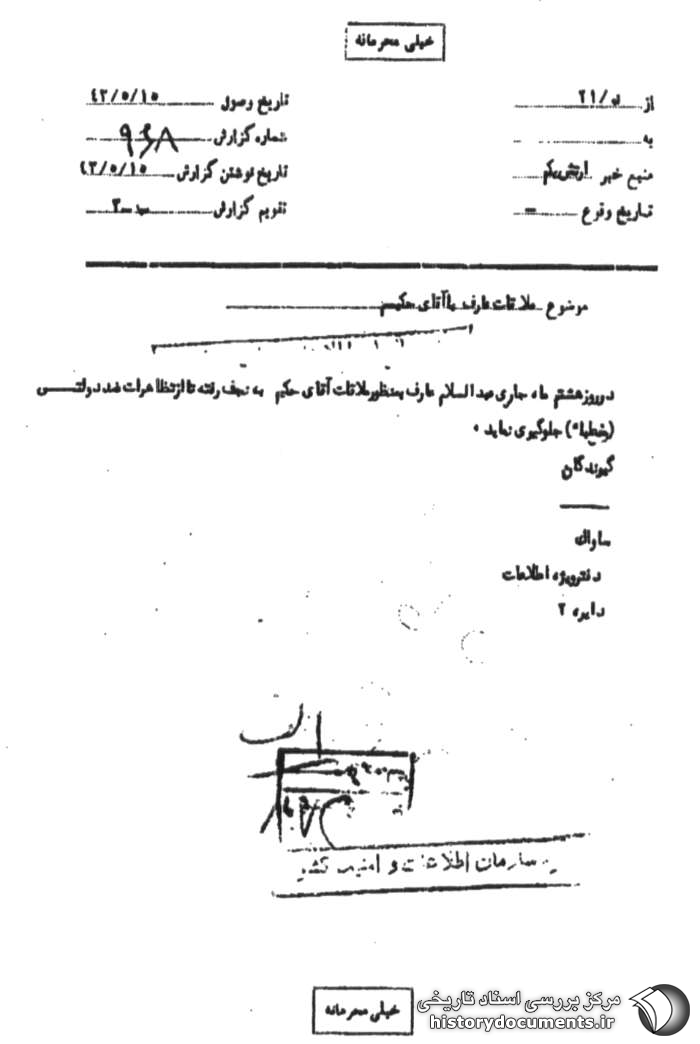 خیلی محرمانه
از ۲۱/ه
تاریخ وصول ۴۲/۵/۱۵
به
شماره گزارش ۹۴۸
منبع خبر ارتش یکم
تاریخ نوشتن گزارش ۴۲/۵/۱۵
تاریخ وقوع -
تقویم گزارش
موضوع ملاقات عارف با آقای حکیم
در روز هشتم ماه جاری عبدالسلام عارف بمنظور ملاقات آقای حکیم به نجف رفته تا از تظاهرات ضد دولتی
جلوگیری نماید ۰
گیرندگان
ساواک
دفتر ویژه اطلاعات
دایره ۲
سازمان اطلاعات و امنیت کشور
خیلی محرمانه
مرکز بررسی اسناد تاریخی
historydocuments.ir